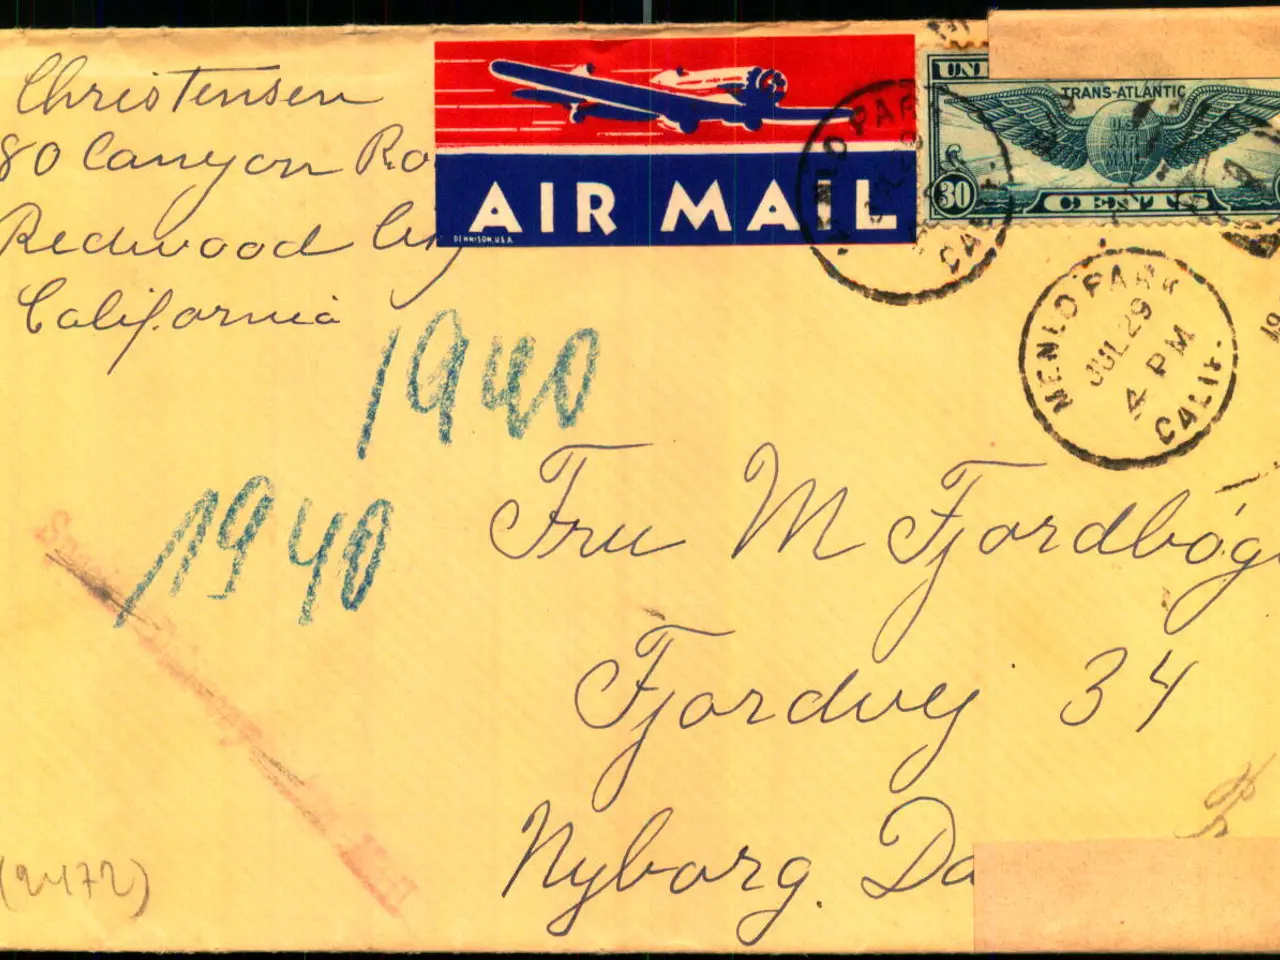 Christensen
80 Canyon Ro
Redwood City
California
AIR MAIL
DENNISON, U.S.A.
UNI
TRANS-ATLANTIC
U.S.
AIR
MAIL
30
CENTS
MENLO PARK
CALIF.
MENLO PARK
JUL 29
4 PM
CALIF.
19
1940
1940
Fru M Fjordbóg
Fjordvej 34
Nyborg. Da
(2472)